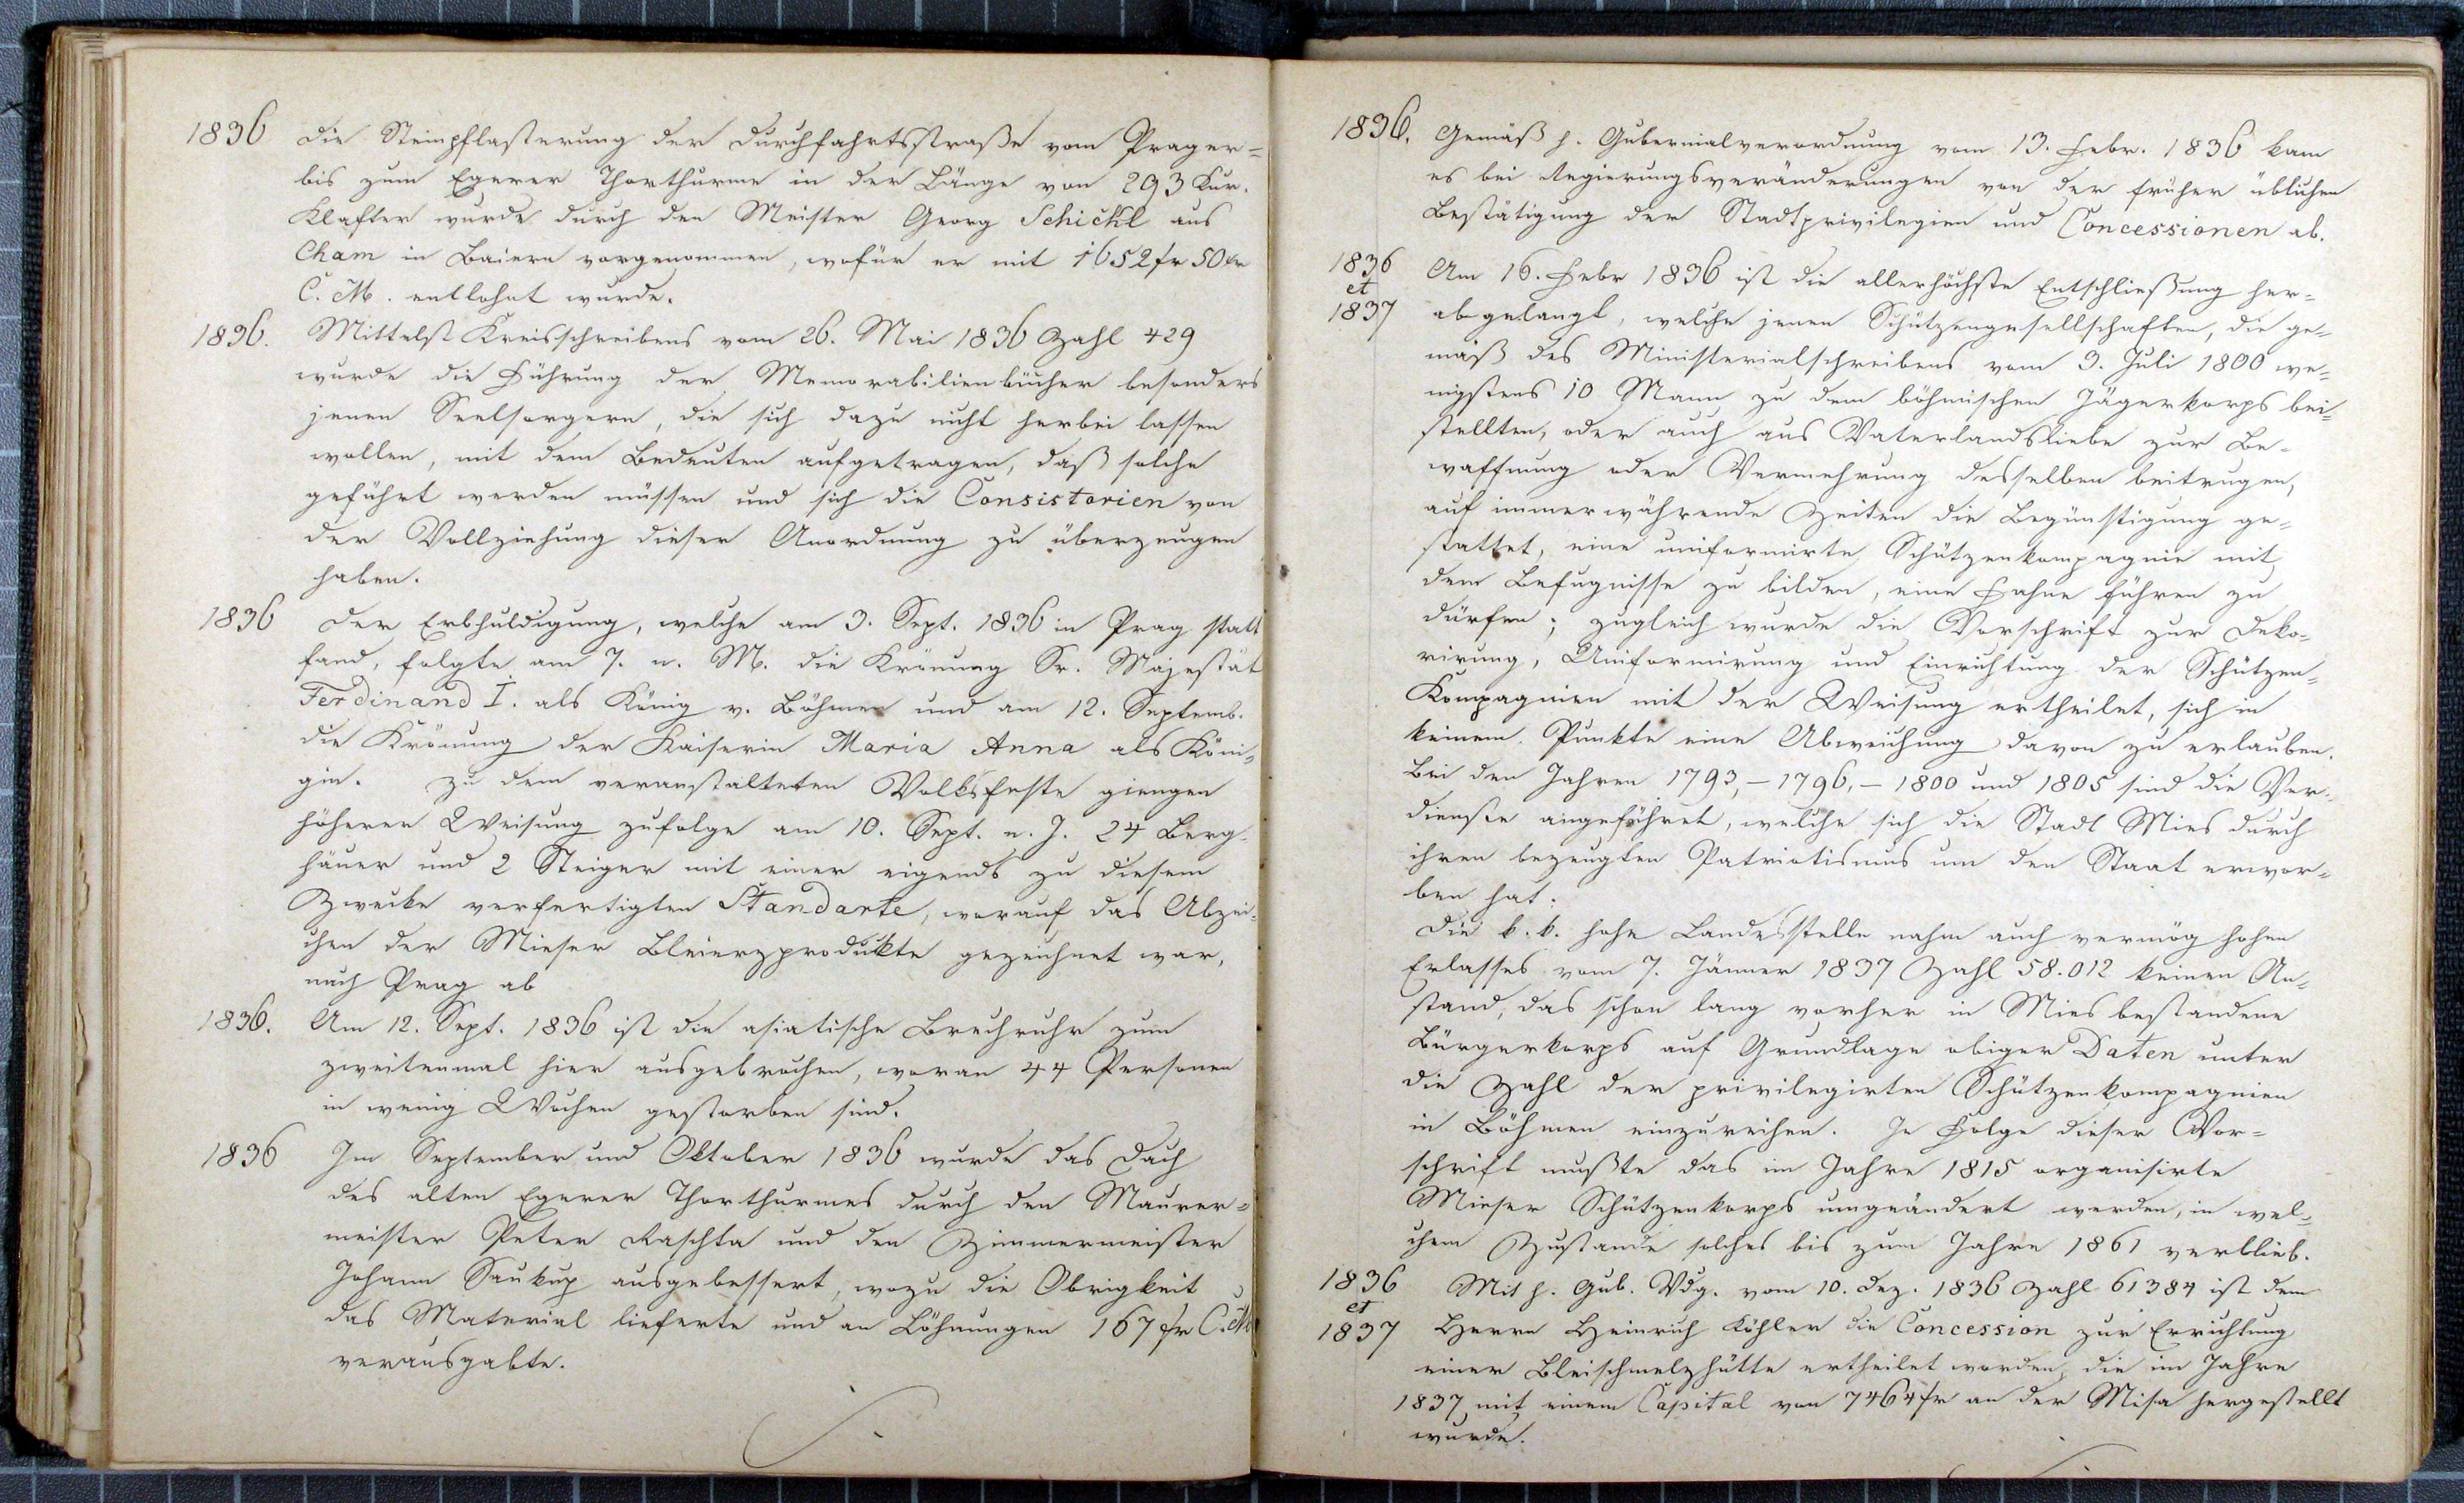 1836 Die Steinpflasterung der Durchfahrtsstraße vom Prager=
bis zum Egerer Thorthurme in der Länge von 293 Kur.
Klafter wurde durch den Meister Georg Schickl aus
Cham in Baiern vorgenommen, wofür er mit 1652 fr 50 kr
C. M. entlohnt wurde.
1836. Mittelst Kreisschreibens vom 26. Mai 1836 Zahl 429
wurde die Führung der Memorabilienbücher besonders
jenen Seelsorgern, die sich dazu nicht herbei lassen
wollen, mit dem Bedeuten aufgetragen, daß solche
geführt werden müssen und sich die Consistorien von
der Vollziehung dieser Anordnung zu überzeugen
haben.
1836 Der Erbhuldigung, welche am 3. Sept. 1836 in Prag statt
fand, folgte am 7. n. M. die Krönung Sr. Majestät
Ferdinand I. als König v. Böhmen und am 12. Septemb.
die Krönung der Kaiserin Maria Anna als Köni=
gin. Zu dem veranstalteten Volksfeste giengen
höherer Weisung zufolge am 10. Sept. n. J. 24 Berg-
häuer und 2 Steiger mit einer eigends zu diesem
Zwecke verfertigten Standarte, worauf das Abzei-
chen der Mieser Bleierzprodukte gezeichnet war,
nach Prag ab
1836. Am 12. Sept. 1836 ist die asiatische Brechruhr zum
zweitenmal hier ausgebrochen, woran 44 Personen
in wenig Wochen gestorben sind.
1836 Im September und Oktober 1836 wurde das Dach
des alten Egerer Thorthurmes durch den Maurer=
meister Peter Raschka und den Zimmermeister
Johann Saukup ausgebessert, wozu die Obrigkeit
das Material lieferte und an Löhnungen 167 fr C. M
verausgabte.
1836. Gemäß h. Gubernialverordnung vom 13. Febr. 1836 kam
es bei Regierungsveränderungen von der früher üblichen
Bestätigung der Stadtprivilegien und Concessionen ab.
1836 et 1837 Am 16. Febr 1836 ist die allerhöchste Entschließung her=
abgelangt, welche jenen Schützengesellschaften, die ge=
mäß des Ministerialschreibens vom 3. Juli 1800 we=
nigstens 10 Mann zu dem böhmischen Jägerkorps bei=
stellten, oder auch aus Vaterlandsliebe zur Be-
waffnung oder Vermehrung desselben beitrugen,
auf immerwährende Zeiten die Begünstigung ge=
stattet, eine uniformirte Schützenkompagnie mit
dem Befugnisse zu bilden, eine Fahne führen zu
dürfen; zugleich wurde die Vorschrift zur Deko-
rirung, Uniformirung und Einrichtung der Schützen=
Kompagnien mit der Weisung ertheilet, sich in
keinem Punkte eine Abweichung davon zu erlauben.
Bei den Jahren 1793, – 1796, – 1800 und 1805 sind die Ver-
dienste angeführet, welche sich die Stadt Mies durch
ihren bezeugten Patriotismus um den Staat erwor=
ben hat.
Die k. k. hohe Landesstelle nahm auch vermög hohen
Erlasses vom 7. Jänner 1837 Zahl 58.012 keinen An=
stand, das schon lang vorher in Mies bestandene
Bürgerkorps auf Grundlage obiger Daten unter
die Zahl der privilegirten Schützenkompagnien
in Böhmen einzureihen. In Folge dieser Vor=
schrift mußte das im Jahre 1815 organisirte
Mieser Schützenkorps umgeändert werden, in wel=
chem Zustande solches bis zum Jahre 1861 verblieb.
1836 et 1837 Mit h. Gub. Vdg. vom 10. Dez. 1836 Zahl 61384 ist dem
Herrn Heinrich Köhler die Concession zur Errichtung
einer Bleischmelzhütte ertheilet worden, die im Jahre
1837 mit einem Capital von 7464 fr an der Misa hergestellt
wurde.